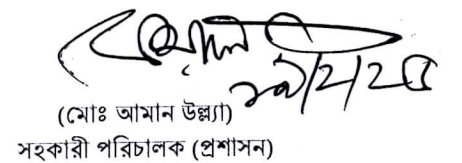 (মোঃ আমান উল্ল্যা)
সহকারী পরিচালক (প্রশাসন)